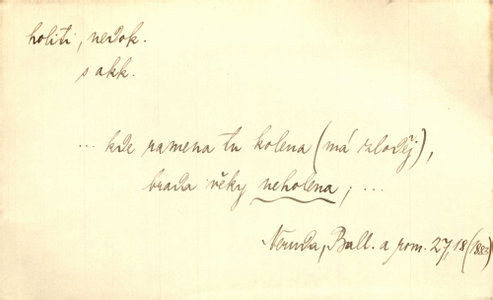 holiti, nedok.
s akk.
... kde ramena tu kolena (má zloděj),
brada věky neholena; ...
Neruda, Ball. a rom. 27, 18 (1883)